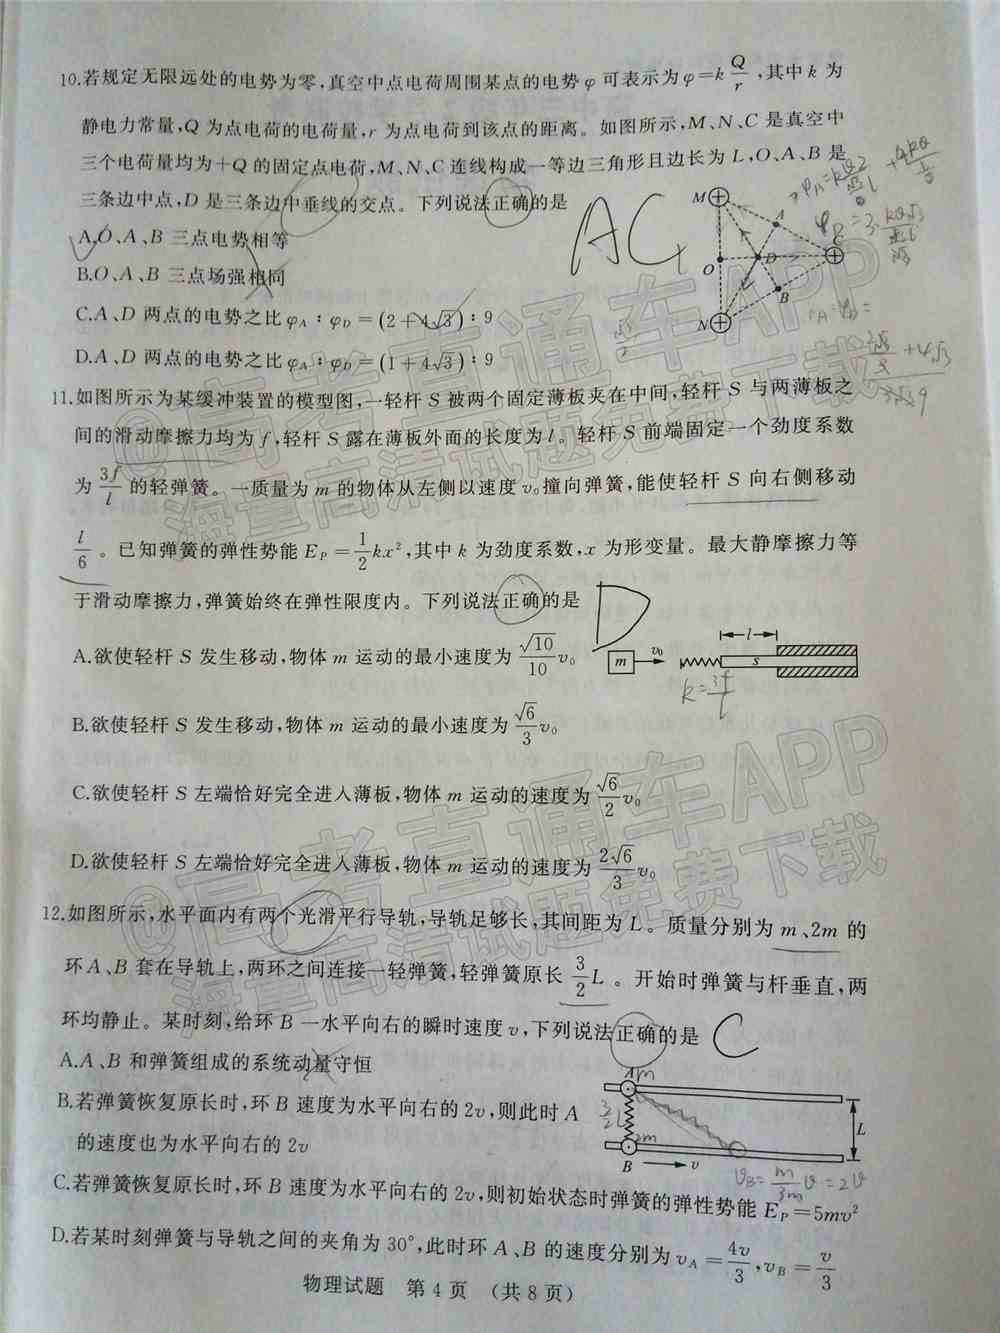 10.若规定无限远处的电势为零,真空中点电荷周围某点的电势 φ 可表示为 φ=k Q/r ,其中 k 为
静电力常量,Q 为点电荷的电荷量,r 为点电荷到该点的距离。如图所示,M、N、C 是真空中
三个电荷量均为+Q 的固定点电荷,M、N、C 连线构成一等边三角形且边长为 L,O、A、B 是
三条边中点,D 是三条边中垂线的交点。下列说法正确的是
AC
A.O、A、B 三点电势相等
B.O、A、B 三点场强相同
C.A、D 两点的电势之比 φA:φD=(2+4√3):9
D.A、D 两点的电势之比 φA:φD=(1+4√3):9
M
A
C
O
D
B
N
11.如图所示为某缓冲装置的模型图,一轻杆 S 被两个固定薄板夹在中间,轻杆 S 与两薄板之
间的滑动摩擦力均为 f,轻杆 S 露在薄板外面的长度为 l。轻杆 S 前端固定一个劲度系数
为 3f/l 的轻弹簧。一质量为 m 的物体从左侧以速度 v₀ 撞向弹簧,能使轻杆 S 向右侧移动
l/6 。已知弹簧的弹性势能 EP=1/2 kx²,其中 k 为劲度系数,x 为形变量。最大静摩擦力等
于滑动摩擦力,弹簧始终在弹性限度内。下列说法正确的是
D
A.欲使轻杆 S 发生移动,物体 m 运动的最小速度为 √10/10 v₀
B.欲使轻杆 S 发生移动,物体 m 运动的最小速度为 √6/3 v₀
C.欲使轻杆 S 左端恰好完全进入薄板,物体 m 运动的速度为 √6/2 v₀
D.欲使轻杆 S 左端恰好完全进入薄板,物体 m 运动的速度为 2√6/3 v₀
l
m
v₀
S
k=3f/l
12.如图所示,水平面内有两个光滑平行导轨,导轨足够长,其间距为 L。质量分别为 m、2m 的
环 A、B 套在导轨上,两环之间连接一轻弹簧,轻弹簧原长 3/2 L 。开始时弹簧与杆垂直,两
环均静止。某时刻,给环 B 一水平向右的瞬时速度 v,下列说法正确的是
C
A.A、B 和弹簧组成的系统动量守恒
B.若弹簧恢复原长时,环 B 速度为水平向右的 2v,则此时 A
的速度也为水平向右的 2v
C.若弹簧恢复原长时,环 B 速度为水平向右的 2v,则初始状态时弹簧的弹性势能 EP=5mv²
D.若某时刻弹簧与导轨之间的夹角为 30°,此时环 A、B 的速度分别为 vA=4v/3,vB=v/3
A
m
3/2 L
2m
B
v
L
物理试题 第 4 页 (共 8 页)
@高考直通车APP
海量高清试题免费下载
@高考直通车APP
海量高清试题免费下载